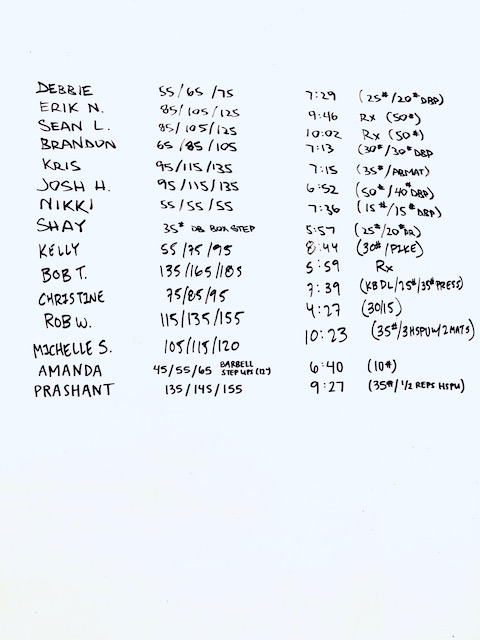 DEBBIE 55/65/75 7:29 (25#/20# DBP)
ERIK N. 85/105/125 9:46 Rx (50#)
SEAN L. 85/105/125 10:02 Rx (50#)
BRANDON 65/85/105 7:13 (30#/30# DBP
KRIS 95/115/135 7:15 (35#/ABMAT)
JOSH H. 95/115/135 6:52 (50#/40# DBP)
NIKKI 55/55/55 7:36 (15#/15# DBP)
SHAY 35# DB BOX STEP 5:57 (25#/20#)
KELLY 55/75/95 8:44 (30#/PIKE)
BOB T. 135/165/185 5:59 Rx
CHRISTINE 75/85/95 7:39 (KB DL/25#/35# PRESS)
ROB W. 115/135/155 4:27 (30/15)
MICHELLE S. 105/115/120 10:23 (35#/3HSPU w/2 MATS)
AMANDA 45/55/65 BARBELL STEP UPS (12") 6:40 (10#)
PRASHANT 135/145/155 9:27 (35#/1/2 REPS HSPU)